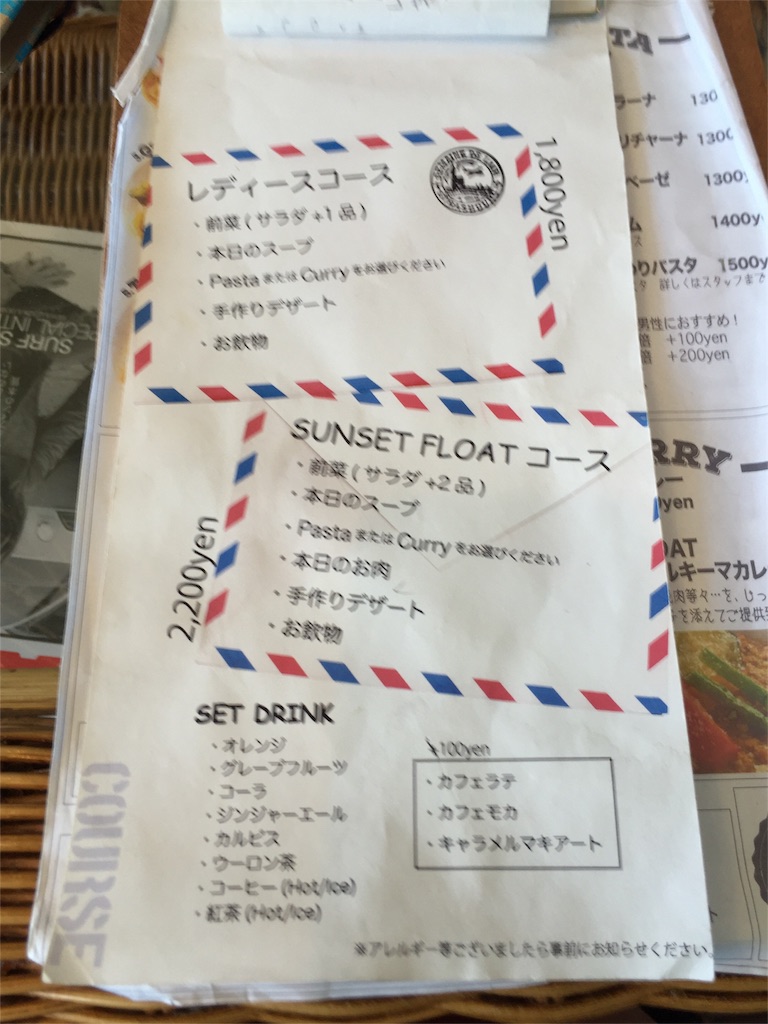 レディースコース
1,800yen
・前菜 ( サラダ +1 品 )
・本日のスープ
・Pasta または Curry をお選びください
・手作りデザート
・お飲物
SUNSET FLOAT コース
2,200yen
・前菜 ( サラダ +2 品 )
・本日のスープ
・Pasta または Curry をお選びください
・本日のお肉
・手作りデザート
・お飲物
SET DRINK
・オレンジ
・グレープフルーツ
・コーラ
・ジンジャーエール
・カルピス
・ウーロン茶
・コーヒー (Hot/Ice)
・紅茶 (Hot/Ice)
+100yen
・カフェラテ
・カフェモカ
・キャラメルマキアート
※アレルギー等ございましたら事前にお知らせください。
COURSE
TA
ラーナ 130
リチャーナ 1300
ベーゼ 1300
ム 1400y
ス
りパスタ 1500y
タ 詳しくはスタッフまで
男性におすすめ！
+100yen
+200yen
RRY
レー
yen
OAT
ルキーマカレ
肉等々…を、じっ
を添えてご提供
SURF S
PECIAL INT